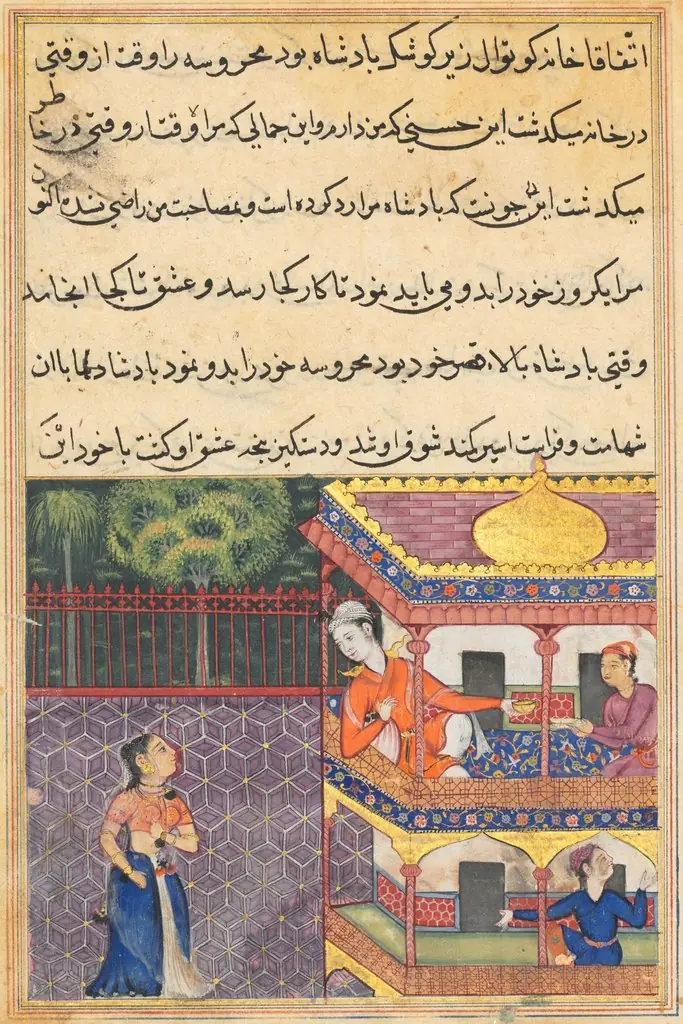 اتفاقا خانه کوتوال زیر کوشک بادشاه بود محروسه را وقت از وقتی
در خانه میکدشت این حسنی که من دارم و این جمالی که مراو قتار وقتی در خاطر
میکدشت این جونست که بادشاه مرا رد کرده است و بمصاحبت من راضی نشده اکنون
مرا یکروز خود را بدو می باید نمود تا کار کجا رسد و عشق تا کجا انجامد
وقتی بادشاه بالاء قصر خود بود محروسه خود را بدو نمود بادشاه با ان
شهامت و فراست اسیر کمند شوق او شد و دستکیر بنجه عشق او کشت با خود این